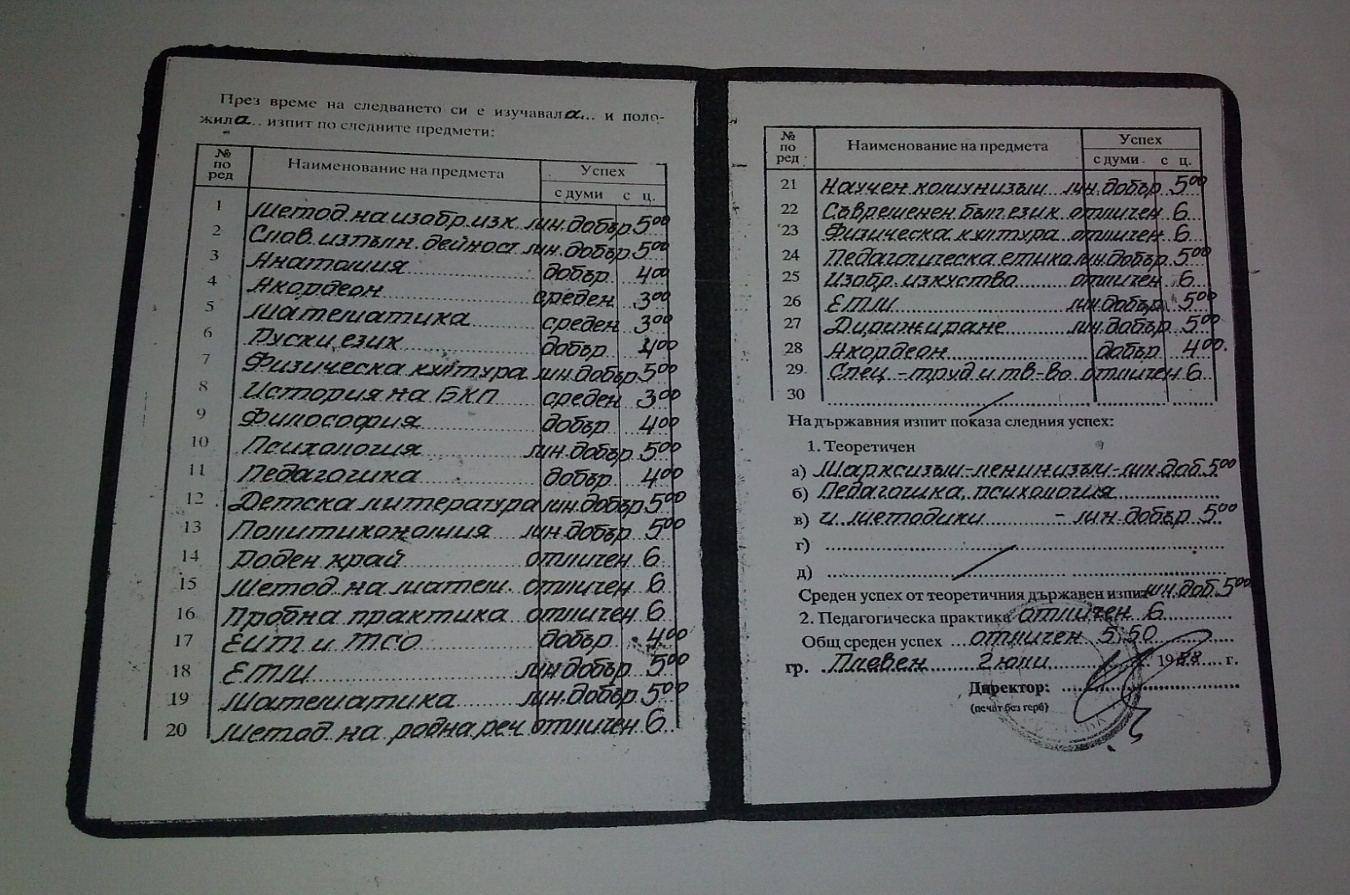 През време на следването си е изучавала... и поло-
жила.. изпит по следните предмети:
№ по ред Наименование на предмета Успех
с думи с ц.
1 Метод. на изобр. изк. мн. добър 500
2 Слов. изпълн. дейност мн. добър 500
3 Анатомия добър 400
4 Акордеон среден 300
5 Математика среден 300
6 Руски език добър 400
7 Физическа култура мн. добър 500
8 История на БКП среден 300
9 Философия добър 400
10 Психология мн. добър 500
11 Педагогика добър 400
12 Детска литература мн. добър 500
13 Политикономия мн. добър 500
14 Роден край отличен 6
15 Метод. на матем. отличен 6
16 Пробна практика отличен 6
17 ЕИТ и ТСО добър 400
18 ЕТМ мн. добър 500
19 Математика мн. добър 500
20 Метод. на родна реч отличен 6
№ по ред Наименование на предмета Успех
с думи с ц.
21 Научен комунизъм мн. добър 500
22 Съвременен бълг. език отличен 6
23 Физическа култура отличен 6
24 Педагогическа етика мн. добър 500
25 Изобр. изкуство отличен 6
26 ЕТМ мн. добър 500
27 Дирижиране мн. добър 500
28 Акордеон добър 400
29. Спец - труд и тв-во отличен 6
30
На държавния изпит показа следния успех:
1. Теоретичен
а) Марксизъм-ленинизъм - мн. доб. 500
б) Педагогика, психология
в) и методики - мн. добър 500
г)
д)
Среден успех от теоретичния държавен изпит мн. доб. 500
2. Педагогическа практика отличен 6
Общ среден успех отличен 5,50
гр. Плевен 2 юли 1988 г.
Директор:
(печат без герб)